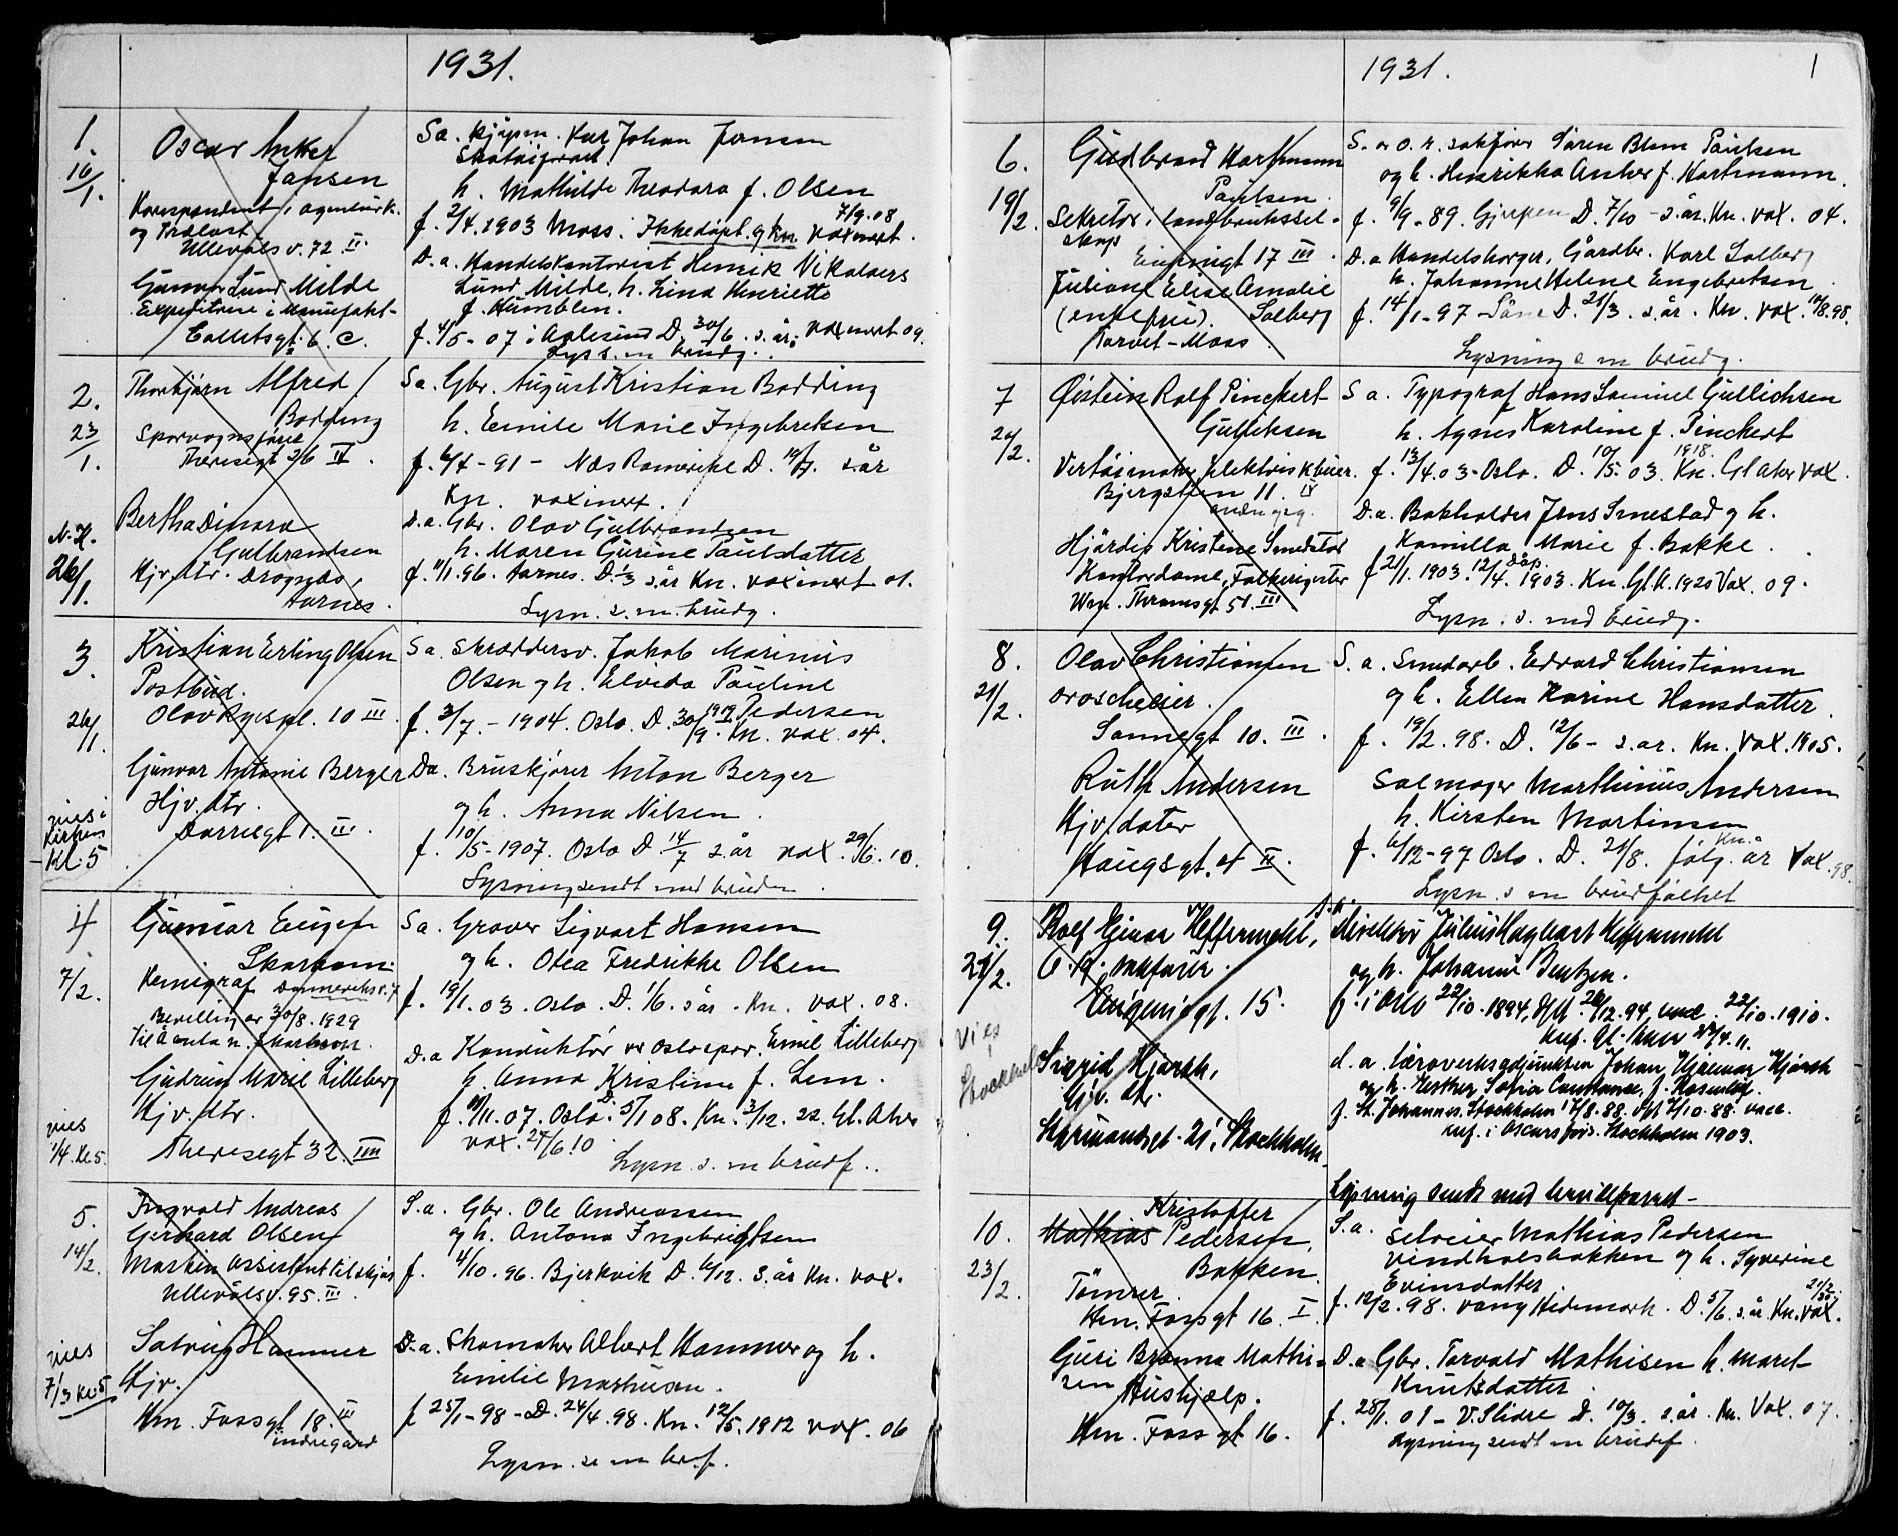 1931.
1.
16/1.
Oscar Anker
Jansen
Korrespondent i agenturk.
og Trælast.
Ullevåls v. 72. II.
Gunvor Lund Milde
Expeditrise i Manufakt-
Colletsgt. 6. C.
Sa. Karl Johan Jansen
h. Mathilde Theodora f. Olsen
7/9.08
f. 2/4. 1903 Moss. Ikkedøpt. og Kn. vax.
D.a. Handelskontorist Henrik Nikolaers
Lund Milde, h. Lina Henriette
f. Humblen.
f. 4/5 - 07 i Aalesund D. 30/6. s. år. vaxinert 09.
Lys s. m brudg.
2.
23/1.
Thorbjørn Alfred
Bodding
Sporvognsfører
Theresegt 36 IV.
N.H.
26/1.
Bertha Dinara
Gulbrandsen
Hjv. dtr. Drognes,
Aarnes.
Sa. Gbr. August Kristian Bodding
h. Emilie Marie Ingebretsen
f. 6/4 - 91 - Nes Romerike D. 19/7. s. år
Kn. vaxinert.
D.a. Gbr. Olav Gulbrandsen
h. Maren Gurine Paulsdatter
f. 11/1. 96. Aarnes. D. 1/3 s. år Kn. vaxinert 01.
Lysn. s. m. brudg.
3.
26/1.
Kristian Erling Olsen
Postbud.
Olav Ryespl. 10 III.
Gunvor Antonie Berger
Hjv. dtr.
Darresgt 1. III.
vies i
Kirken
Kl. 5
Sa. Skreddersv. Jakob Marinus
Olsen og h. Elvida Pauline
Pedersen
f. 3/7. - 1904. Oslo. D. 30/9. 1919 Kn. vax. 04.
Da. Bruskjører Anton Berger
og h. Anna Nilsen.
f. 10/5 - 1907. Oslo D 14/7 s. år vax. 29/6. 10.
Lysning sendt med bruden.
4.
7/2.
Gunnar Eugen
Skarbom.
Kemigraf Danmarks v. 7
Bevilling av 30/8. 1929
til å anta n. Skarbom.
Gudrun Marie Lilleberg
Hjv. dtr.
Theresegt 32. IIII
vies
1/4. Kl 5.
Sa. Graver Sigvart Hansen
og h. Otea Fredrikke Olsen
f. 19/1. 03. Oslo. D. 1/6. s år. Kn. vax. 08.
D.a Konduktør ve Oslo spor. Emil Lilleberg
h. Anna Kristine f. Lem.
f. 11/11. 07. Oslo. D. 5/1 08. Kn. 3/12. 22. Gl. Aker
vax. 27/6. 10
Lysn. s. m brudf.
5.
14/2.
Ingvald Andreas
Gerhard Olsen
Maskinassistent til skjøs
Ullevåls v. 95. III.
Solveig Hammer
Hjv.
Hm. Fossgt 18. III
indregård
vies
7/3 Kl. 5
S.a. Gbr. Ole Andreassen
og h. Antona Ingebrigtsen
f. 4/10. 96. Bjerkvik D. 6/12. s. år Kn. vax.
D.a. Skomaker Albert Hammer og h.
Emilie Mathisen.
f 25/1 - 98 - D. 24/4. 98. Kn. 12/5. 1912 vax. 06
Lysn. s. m br.f.
1931.
1
6.
19/2.
Gudbrand Hartmann
Paulsen
Sekretær i landbruksel-
skap
Eugenigt 17 III.
Juliane Elise Amalie
(enkefrue). Solberg
Torvet - Moss.
S. av o. r. sakfører Søren Blom Paulsen
og h. Henrikka Anker f. Hartmann.
f. 9/9 - 89. Gjerpen D. 7/10 - s. år. Kn. vax. 04.
D.a Handelsborger, Gårdbr. Karl Solberg
h. Johanne Helene Engebretsen
f. 14/1 - 97 - Såner D. 21/3. s. år. Kn. vax. 10/8. 98.
Lysning s m brudg.
7
20/2.
Øistein Rolf Pinckert
Gulliksen
Vertøimaker Elektrisk buer.
Bjergstien 11. IV
andre gg.
Hjørdis Kristene Smestad
Kontordame, Folkerigister
Wm. Thranesgt 51. III
S a. Typograf Hans Samuel Gullichsen
h. Agnes Karoline f. Pinckert
f. 13/4. 03 - Oslo. D. 10/5. 03. Kn. 1918. Gl Aker vax.
D.a. Bokholder Jens Smestad og h.
Kamilla Marie f. Bakke.
f 21/1. 1903. 12/4. Døp. 1903. Kn. Gl. A. 1920 Vax. 09.
Lysn. s. med brudg.
8.
21/2.
Olav Christiansen
Droscheeier.
Sannergt 10. III.
Ruth Andersen
Hjv. dater
Haugsgt. 4 II.
S. a. Smedarb. Edvard Christiansen
og h. Ellen Karine Hansdatter.
f. 19/2. 98. D. 12/6 - s. ar. Kn. Vax. 1905.
Salmager Marthinius Andersen
h. Kirsten Martinsen
f. 6/12 - 97 Oslo. D. 21/8. følg. år Kn. Vax. 98.
Lysn. s m brudfolket
9.
21/2.
Rolf Einar Heffermehl,
O.r. sakfører.
Eugeniegt. 15.
Vies
i
Stockholm
Sigrid Hjorth,
hjv. dtr.
Stockholm.
S.a. direktør Julius Hagbart Heffermehl
og h. Johanne Bentzen.
f. i Oslo 22/10. 1894, dpt. 26/12. 94, vacc. 22/10. 1910.
konf. Gl. Aker 27/4. 11.
d. a. läroverksadjunkten Johan Hjalmar Hjorth
og h. Esther Sofia Constance, f. Rosenlöf.
f. St. Johannes. Stockholm 17/8. 88. dpt 7/10. 88. vacc.
konf. i Oscars förs. Stockholm 1903.
Lysning sendt med brudeparret -
10.
23/2.
Kristoffer
Mathias Pedersen
Bakken.
Tømrer.
Hm. Fossgt 16. I
Guri Branna Mathi-
sen Hushjælp.
Hm. Foss gt 16.
S.a. Selveier Mathias Pedersen
Vindholsbakken og h. Syverine
Evinsdatter
f. 12/2. 98. Vang Hedemark. D. 5/6. s. år. Kn. vax.
D.a Gbr. Torvald Mathisen h. Marit
Knutsdatter
f. 28/1. 01 - V. Slidre D. 10/3. s. år. Kn. Vax. 07.
Lysning sendt m brudef.